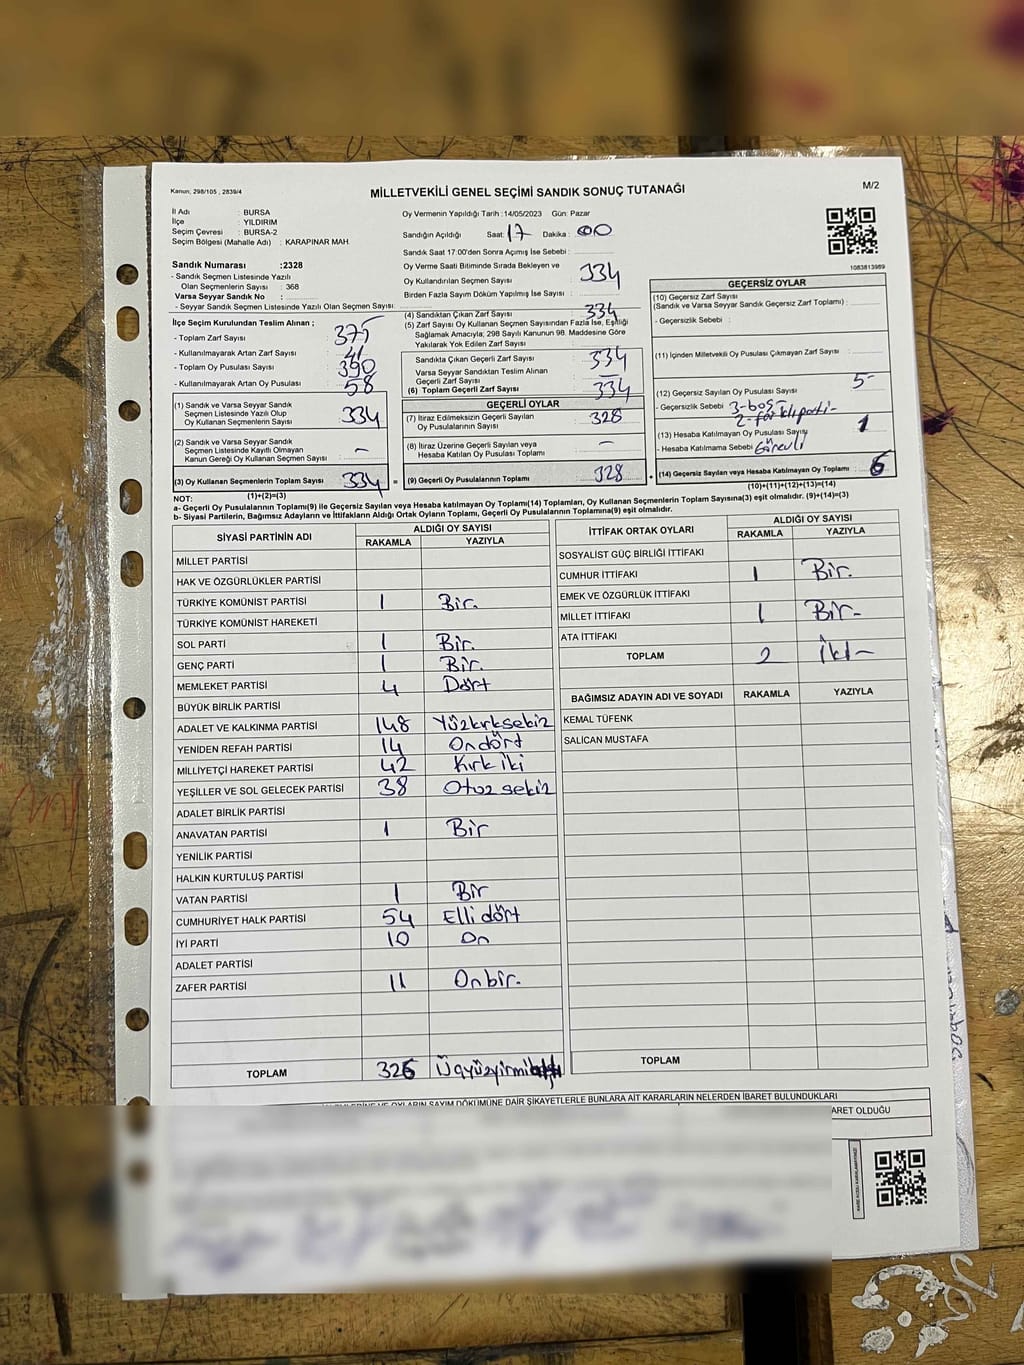 Kanun; 298/105 , 2839/4
MİLLETVEKİLİ GENEL SEÇİMİ SANDIK SONUÇ TUTANAĞI
M/2
İl Adı : BURSA
İlçe : YILDIRIM
Seçim Çevresi : BURSA-2
Seçim Bölgesi (Mahalle Adı) : KARAPINAR MAH.
Sandık Numarası :2328
- Sandık Seçmen Listesinde Yazılı
Olan Seçmenlerin Sayısı : 368
Varsa Seyyar Sandık No :
- Seyyar Sandık Seçmen Listesinde Yazılı Olan Seçmen Sayısı:
Oy Vermenin Yapıldığı Tarih :14/05/2023 Gün: Pazar
Sandığın Açıldığı Saat: 17 Dakika: 00
Sandık Saat 17:00'den Sonra Açılmış İse Sebebi :
Oy Verme Saati Bitiminde Sırada Bekleyen ve
Oy Kullandırılan Seçmen Sayısı : 334
Birden Fazla Sayım Döküm Yapılmış İse Sayısı :
1083813989
İlçe Seçim Kurulundan Teslim Alınan ;
- Toplam Zarf Sayısı : 375
- Kullanılmayarak Artan Zarf Sayısı : 41
- Toplam Oy Pusulası Sayısı : 390
- Kullanılmayarak Artan Oy Pusulası : 58
(1) Sandık ve Varsa Seyyar Sandık
Seçmen Listesinde Yazılı Olup
Oy Kullanan Seçmenlerin Sayısı : 334
(2) Sandık ve Varsa Seyyar Sandık
Seçmen Listesinde Kayıtlı Olmayan
Kanun Gereği Oy Kullanan Seçmen Sayısı : -
(3) Oy Kullanan Seçmenlerin Toplam Sayısı : 334
(1)+(2)=(3)
(4) Sandıktan Çıkan Zarf Sayısı : 334
(5) Zarf Sayısı Oy Kullanan Seçmen Sayısından Fazla İse, Eşitliği
Sağlamak Amacıyla; 298 Sayılı Kanunun 98. Maddesine Göre
Yakılarak Yok Edilen Zarf Sayısı :
Sandıkta Çıkan Geçerli Zarf Sayısı : 334
Varsa Seyyar Sandıktan Teslim Alınan
Geçerli Zarf Sayısı : -
(6) Toplam Geçerli Zarf Sayısı : 334
GEÇERLİ OYLAR
(7) İtiraz Edilmeksizin Geçerli Sayılan
Oy Pusulalarının Sayısı : 328
(8) İtiraz Üzerine Geçerli Sayılan veya
Hesaba Katılan Oy Pusulası Toplamı : -
= (9) Geçerli Oy Pusulalarının Toplamı : 328 +
GEÇERSİZ OYLAR
(10) Geçersiz Zarf Sayısı
(Sandık ve Varsa Seyyar Sandık Geçersiz Zarf Toplamı) :
- Geçersizlik Sebebi :
(11) İçinden Milletvekili Oy Pusulası Çıkmayan Zarf Sayısı :
(12) Geçersiz Sayılan Oy Pusulası Sayısı : 5-
- Geçersizlik Sebebi : 3-boş-
2-farklı parti-
(13) Hesaba Katılmayan Oy Pusulası Sayısı : 1
- Hesaba Katılmama Sebebi : Görevli
(14) Geçersiz Sayılan veya Hesaba Katılmayan Oy Toplamı : 6
(10)+(11)+(12)+(13)=(14)
NOT:
a- Geçerli Oy Pusulalarının Toplamı(9) ile Geçersiz Sayılan veya Hesaba katılmayan Oy Toplamı(14) Toplamları, Oy Kullanan Seçmenlerin Toplam Sayısına(3) eşit olmalıdır. (9)+(14)=(3)
b- Siyasi Partilerin, Bağımsız Adayların ve İttifakların Aldığı Ortak Oyların Toplamı, Geçerli Oy Pusulalarının Toplamına(9) eşit olmalıdır.
SİYASİ PARTİNİN ADI ALDIĞI OY SAYISI
RAKAMLA YAZIYLA
MİLLET PARTİSİ
HAK VE ÖZGÜRLÜKLER PARTİSİ
TÜRKİYE KOMÜNİST PARTİSİ 1 Bir.
TÜRKİYE KOMÜNİST HAREKETİ
SOL PARTİ 1 Bir.
GENÇ PARTİ 1 Bir.
MEMLEKET PARTİSİ 4 Dört
BÜYÜK BİRLİK PARTİSİ
ADALET VE KALKINMA PARTİSİ 148 Yüzkırksekiz
YENİDEN REFAH PARTİSİ 14 On dört
MİLLİYETÇİ HAREKET PARTİSİ 42 Kırk iki
YEŞİLLER VE SOL GELECEK PARTİSİ 38 Otuz sekiz
ADALET BİRLİK PARTİSİ
ANAVATAN PARTİSİ 1 Bir
YENİLİK PARTİSİ
HALKIN KURTULUŞ PARTİSİ
VATAN PARTİSİ 1 Bir
CUMHURİYET HALK PARTİSİ 54 Elli dört
İYİ PARTİ 10 On
ADALET PARTİSİ
ZAFER PARTİSİ 11 Onbir.
TOPLAM 326 Üçyüzyirmi
İTTİFAK ORTAK OYLARI ALDIĞI OY SAYISI
RAKAMLA YAZIYLA
SOSYALİST GÜÇ BİRLİĞİ İTTİFAKI
CUMHUR İTTİFAKI 1 Bir.
EMEK VE ÖZGÜRLÜK İTTİFAKI
MİLLET İTTİFAKI 1 Bir-
ATA İTTİFAKI
TOPLAM 2 İki-
BAĞIMSIZ ADAYIN ADI VE SOYADI RAKAMLA YAZIYLA
KEMAL TÜFENK
SALİCAN MUSTAFA
TOPLAM
OYLARIN SAYIM DÖKÜMÜNE DAİR ŞİKAYETLERLE BUNLARA AİT KARARLARIN NELERDEN İBARET BULUNDUKLARI
ARET OLDUĞU